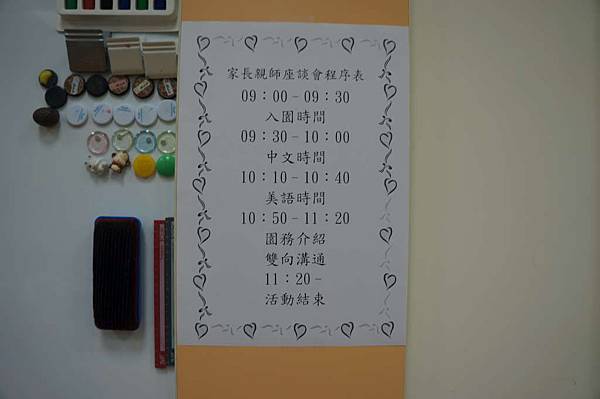 家長親師座談會程序表
09：00－09：30
入園時間
09：30－10：00
中文時間
10：10－10：40
美語時間
10：50－11：20
園務介紹
雙向溝通
11：20－
活動結束